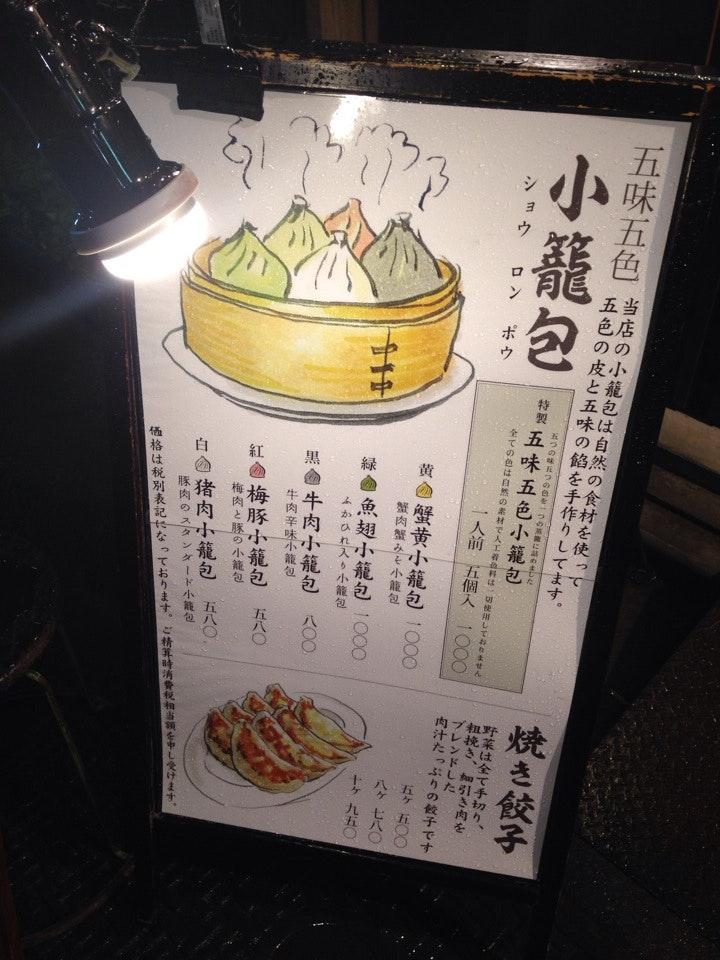 五味五色
小籠包
ショウ ロン ポウ
当店の小籠包は自然の食材を使って
五色の皮と五味の餡を手作りしてます。
五つの味五つの色を一つの蒸籠に詰めました
特製 五味五色小籠包
全ての色は自然の素材で人工着色料は一切使用しておりません
一人前 五個入 一〇〇〇
黄 蟹黄小籠包 一〇〇〇
蟹肉蟹みそ小籠包
緑 魚翅小籠包 一〇〇〇
ふかひれ入り小籠包
黒 牛肉小籠包 八〇〇
牛肉辛味小籠包
紅 梅豚小籠包 五八〇
梅肉と豚の小籠包
白 猪肉小籠包 五八〇
豚肉のスタンダード小籠包
価格は税別表記になっております。ご精算時消費税相当額を申し受けます。
焼き餃子
野菜は全て手切り、
粗挽き、細引き肉を
ブレンドした
肉汁たっぷりの餃子です
五ヶ 五〇〇
八ヶ 七八〇
十ヶ 九五〇